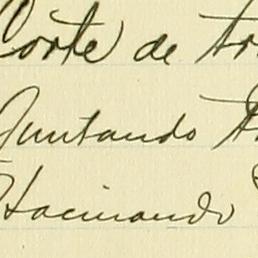 Corte de tr
Juntando
Hacinando